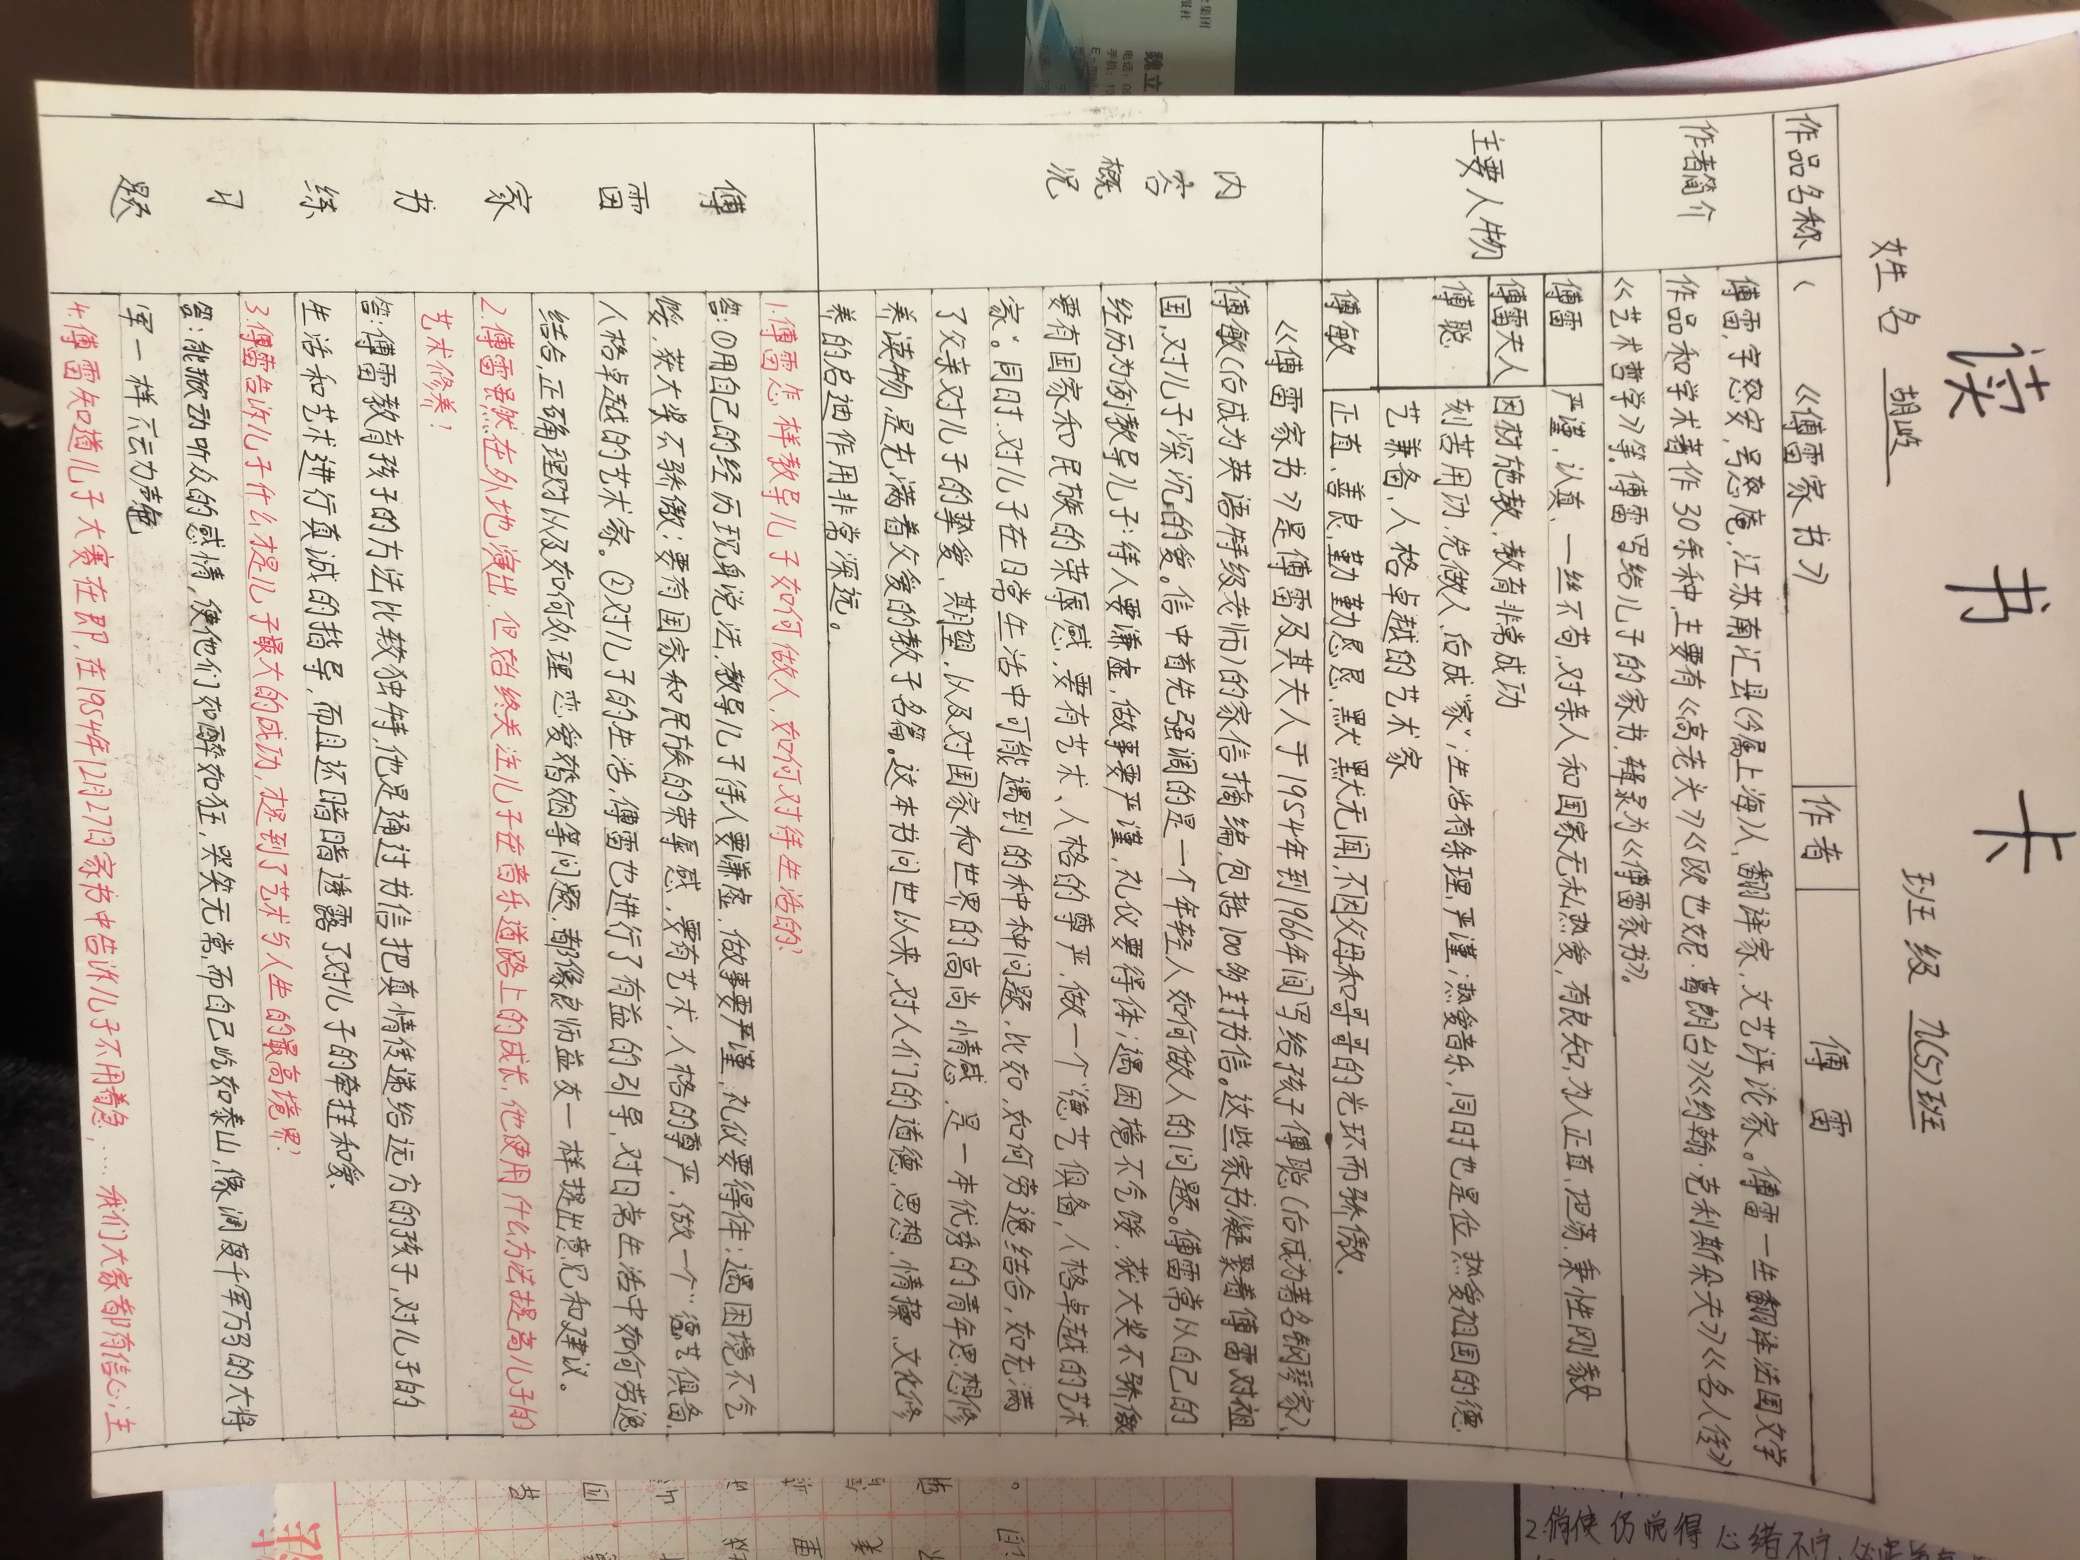 读书卡
姓名 胡  班级 九(5)班
作品名称 《傅雷家书》 作者 傅雷
作者简介
傅雷,字怒安,号怒庵,江苏南汇县(今属上海)人,翻译家,文艺评论家。傅雷一生翻译法国文学
作品和学术著作30余种,主要有《高老头》《欧也妮·葛朗台》《约翰·克利斯朵夫》《名人传》
《艺术哲学》等,傅雷写给儿子的家书,辑录为《傅雷家书》。
主要人物
傅雷 严谨、认真、一丝不苟,对亲人和国家无私热爱,有良知,为人正直、坦荡,秉性刚毅
傅雷夫人 因材施教,教育非常成功
傅聪 刻苦用功,先做人,后成“家”,生活有条理,严谨;热爱音乐,同时也是位热爱祖国的德
艺兼备、人格卓越的艺术家
傅敏 正直、善良,勤勤恳恳,默默无闻,不因父母和哥哥的光环而骄傲.
内容概况
《傅雷家书》是傅雷及其夫人于1954年到1966年间写给孩子傅聪(后成为著名钢琴家)、
傅敏(后成为英语特级老师)的家信摘编,包括100多封书信。这些家书凝聚着傅雷对祖
国,对儿子深沉的爱。信中首先强调的是一个年轻人如何做人的问题。傅雷常以自己的
经历为例教导儿子:待人要谦虚,做事要严谨,礼仪要得体;遇困境不气馁,获大奖不骄傲
要有国家和民族的荣辱感,要有艺术、人格的尊严,做一个“德艺俱备,人格卓越的艺术
家”。同时,对儿子在日常生活中可能遇到的种种问题,比如,如何劳逸结合,如充满
了父亲对儿子的挚爱、期望,以及对国家和世界的高尚情感,是一本优秀的青年思想修
养读物,是充满着父爱的教子名篇。这本书问世以来,对人们的道德、思想、情操、文化修
养的启迪作用非常深远。
傅雷家书练习题
1.傅雷怎样教导儿子如何做人,如何对待生活的?
答:①用自己的经历现身说法,教导儿子待人要谦虚,做事要严谨,礼仪要得体;遇困境不气
馁,获大奖不骄傲;要有国家和民族的荣辱感,要有艺术、人格的尊严,做一个“德艺俱备,
人格卓越的艺术家。②对儿子的生活,傅雷也进行了有益的引导,对日常生活中如何劳逸
结合,正确理财以及如何处理恋爱婚姻等问题,都像良师益友一样提出意见和建议。
2.傅雷虽然在外地演出,但始终关注儿子在音乐道路上的成长,他使用什么方法提高儿子的
艺术修养?
答:傅雷教育孩子的方法比较独特,他是通过书信把真情传递给远方的孩子,对儿子的
生活和艺术进行真诚的指导,而且还暗暗透露了对儿子的牵挂和爱.
3.傅雷告诉儿子什么才是儿子最大的成功,才达到了艺术与人生的最高境界?
答:能掀动听众的感情,使他们如醉如狂,哭笑无常,而自己屹如泰山,像调度千军万马的大将
军一样不动声色
4.傅雷知道儿子大赛在即,在1954年12月27日家书中告诉儿子不用着急,……我们大家都有信心,注